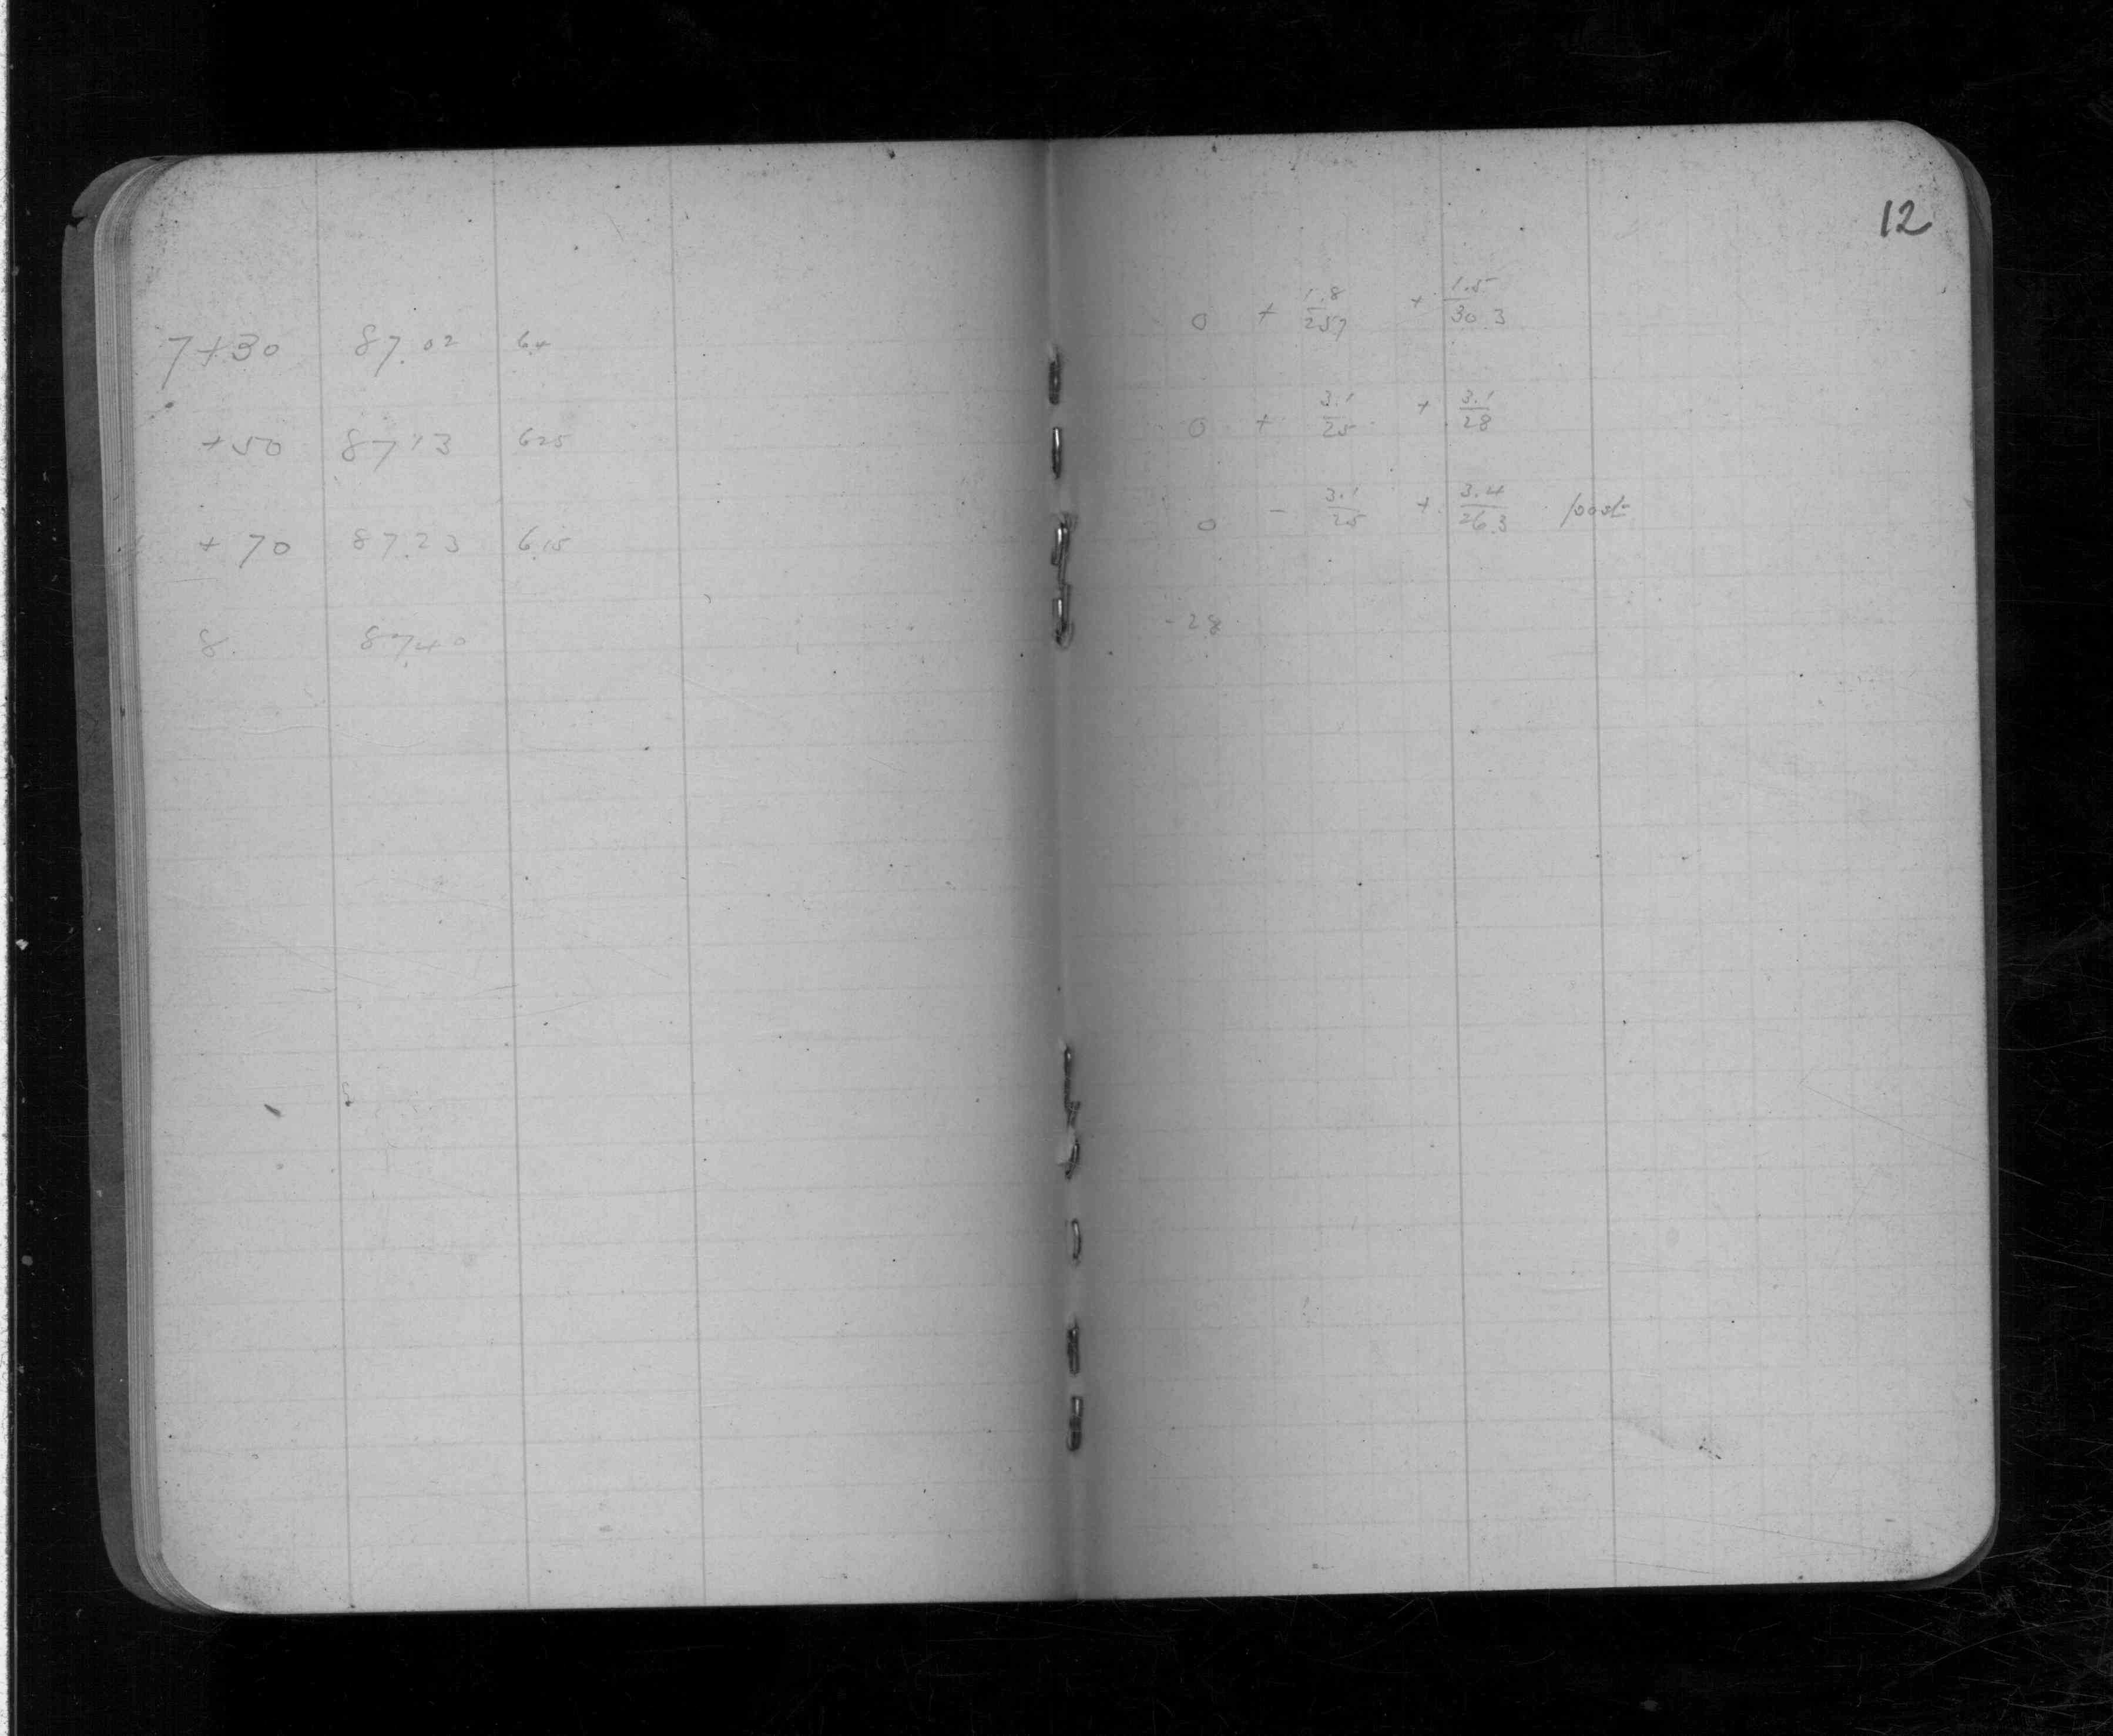 12
7+30 87.02 6.4
+50 87.13 6.25
+70 87.23 6.15
8. 87.40
0 + 1.8/25.7 + 1.5/30.3
0 + 3.1/25 + 3.1/28
0 - 3.1/25 + 3.4/26.3
-28